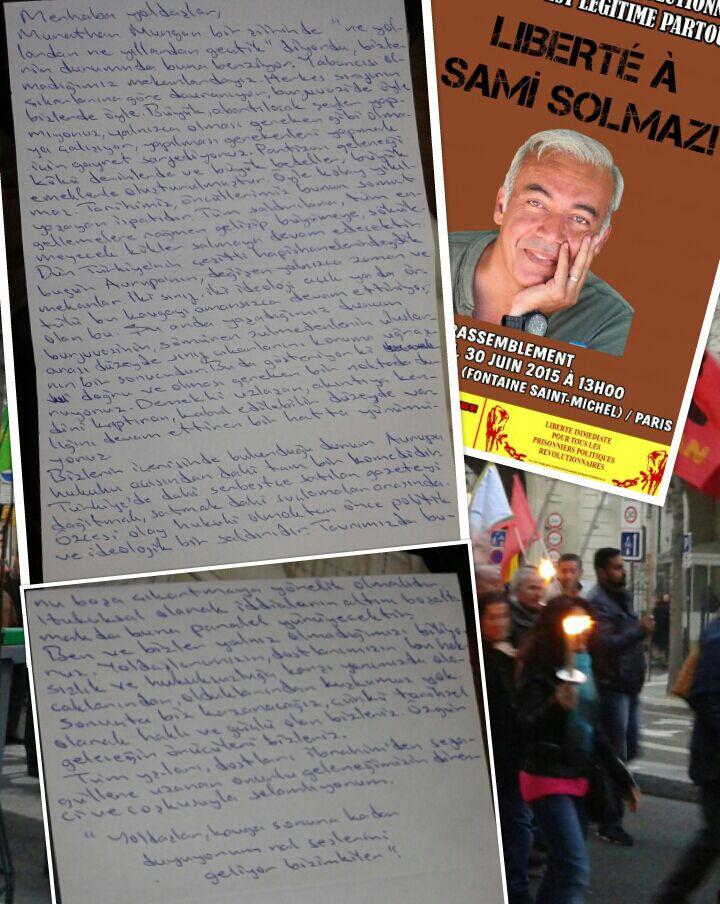 Merhaba yoldaşlar,
Murathan Mungan bir şiirinde "ne yol-
lardan ne yıllardan geçtik" diyordu, bizle-
rin durumuda buna benziyor. Yabancısı ol-
madığımız mekanlardayız. Herkes sınıfının
çıkarlarına göre davranıyor, burjuvazide öyle
bizlerde öyle. Büyük, abartılacak şeyler yap-
mıyoruz, yalnızca olması gereken gibi olma-
ya çalışıyor, yapılması gerekenleri yapmak
için gayret sarfediyoruz. Partizan geleneği
kökü derinlerde ve büyük bedeller, büyük
emeklerle oluşturulmuştur. Öyle kolay yıkıl-
maz. Tarihimiz, öncüllerimiz bunun somut
yaşayan ispatıdır. Tüm saldırılara, tüm en-
gellemelere rağmen gelişip büyümeye, sökül-
meyecek kökler salmaya devam edecektir.
Dün Türkiye'nin çeşitli hapishanelerindeydik
bugün Avrupa'nın, değişen yalnızca zaman ve
mekanlar. İki sınıf, iki ideoloji açık yada ör-
tülü bir kavgayı amansızca devam ettiriyor,
olan bu. Şu anda yaşadığımız durum
burjuvazinin, sömüren zulmedenlerin ulusla-
arası düzeyde sınıf çıkarlarını koruma uğraşı-
nın bir sonucudur. Bu da gösteriyor ki
doğru ve olması gereken bir noktada du-
ruyoruz. Demekki uzlaşan, akıntıya ken-
dini kaptıran, kabul edilebilir düzeyde var-
lığını devam ettiren bir hatta yürümü-
yoruz.
Bizlerin içerisinde bulunduğu konum Avrupa
hukuku açısından dahi tam bir komedidir.
Türkiye'de dahi serbestçe satılan gazeteyi
dağıtmak, satmak dahi suçlamalar arasında.
Özcesi olay hukuki olmaktan önce politik
ve ideolojik bir saldırıdır. Tavrımızda bu-
nu boşa çıkartmaya yönelik olmalıdır.
Hukuksal olarak iddiaların altını boşalt-
makda buna paralel yürüyecektir.
Ben ve bizler yalnız olmadığımızı biliyo-
ruz. Yoldaşlarımızın, dostlarımızın bu hak-
sızlık ve hukuksuzluğa karşı yanımızda ola-
caklarından, olduklarından kuşkumuz yok.
Sonuçta biz kazanacağız, çünkü tarihsel
olarak haklı ve güçlü olan bizleriz. Özgür
geleceğin öncüleri bizleriz.
Tüm yoldaşları, dostları İbrahim'den
uzanan onurlu geleneğimizin diren-
ci ve coşkusuyla selamlıyorum.
"Yoldaşlar, kavga sonuna kadar
duyuyorum nal seslerini
geliyor bizimkiler".
EST LÉGITIME PARTOU
LIBERTÉ À
SAMİ SOLMAZ!
RASSEMBLEMENT
30 JUIN 2015 À 13H00
(FONTAINE SAINT-MICHEL) / PARIS
LIBERTE IMMEDIATE
POUR TOUS LES
PRISONNIERS POLITIQUES
REVOLUTIONNAIRES